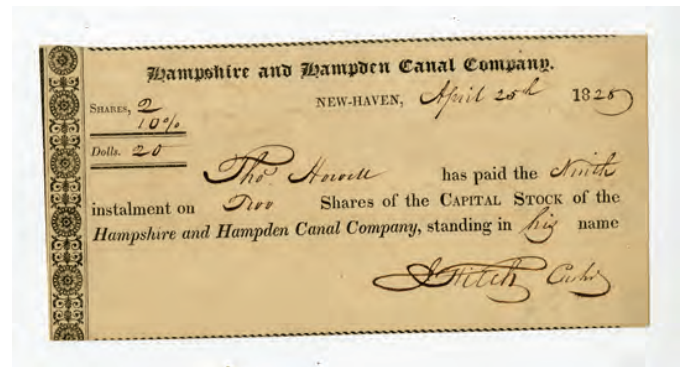 Hampshire and Hampden Canal Company.
SHARES, 2
NEW-HAVEN, April 25th 1828
10%
Dolls. 20
Thos. Howell has paid the Ninth
instalment on Two Shares of the CAPITAL STOCK of the
Hampshire and Hampden Canal Company, standing in his name
J Fitch Cashr